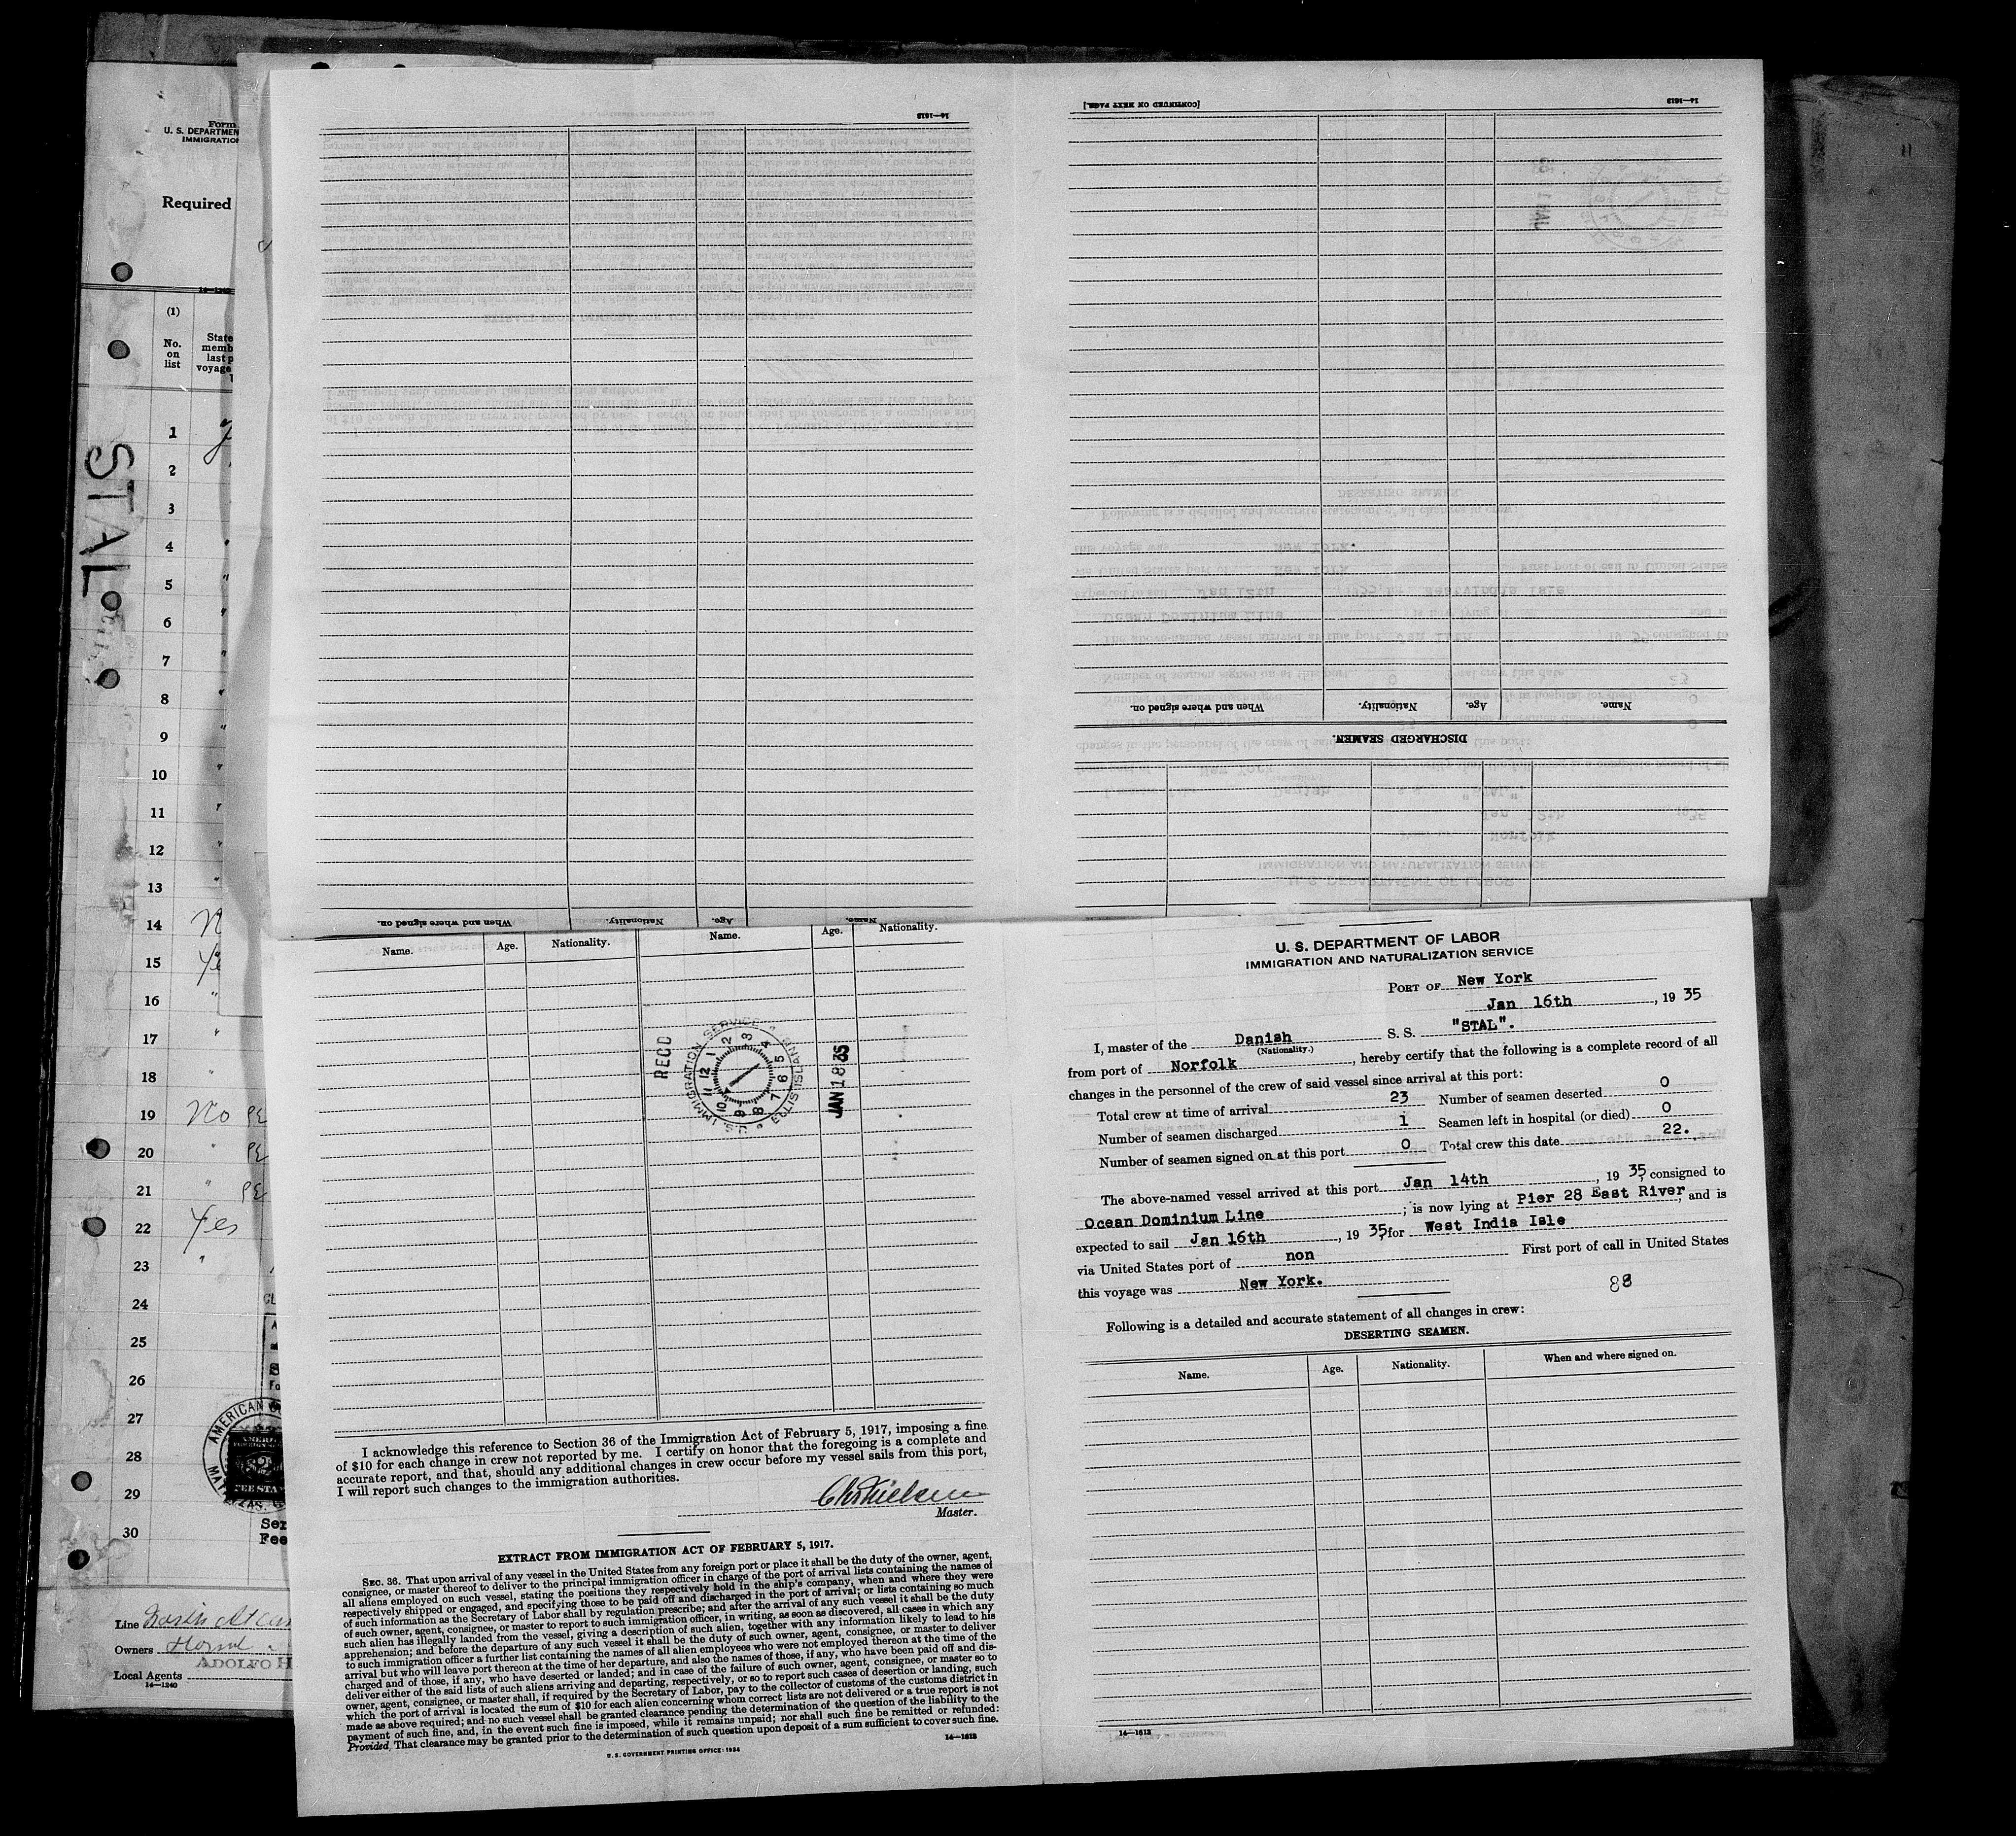 Form
U. S. DEPARTMEN
IMMIGRATION
Required
14—1240
(1)
No.
on
list
State
memb
last p
voyage
STAL
1
2
3
4
5
6
7
8
9
10
11
12
13
14 N
15 Ye
16 "
17 "
18 "
19 No PE
20 " PE
21 " PE
22 Yes
23 "
24
25
26
27
28
29
30
AMERICAN
Ser
Fee
Line
Owners
ADOLFO H
Local Agents
14—1240
14—1613
When and where signed on. Nationality. Age. Name.
[CONTINUED ON NEXT PAGE.]
14—1613
When and where signed on. Nationality. Age. Name.
DISCHARGED SEAMEN.
Name. Age. Nationality. Name. Age. Nationality.
RECD
U.S. IMMIGRATION SERVICE
ELLIS ISLAND
12 1 2 3 4 5 6 7 8 9 10 11
JAN 18 35
I acknowledge this reference to Section 36 of the Immigration Act of February 5, 1917, imposing a fine
of $10 for each change in crew not reported by me. I certify on honor that the foregoing is a complete and
accurate report, and that, should any additional changes in crew occur before my vessel sails from this port,
I will report such changes to the immigration authorities.
Chr Nielsen
Master.
EXTRACT FROM IMMIGRATION ACT OF FEBRUARY 5, 1917.
SEC. 36. That upon arrival of any vessel in the United States from any foreign port or place it shall be the duty of the owner, agent,
consignee, or master thereof to deliver to the principal immigration officer in charge of the port of arrival lists containing the names of
all aliens employed on such vessel, stating the positions they respectively hold in the ship's company, when and where they were
respectively shipped or engaged, and specifying those to be paid off and discharged in the port of arrival; or lists containing so much
of such information as the Secretary of Labor shall by regulation prescribe; and after the arrival of any such vessel it shall be the duty
of such owner, agent, consignee, or master to report to such immigration officer, in writing, as soon as discovered, all cases in which any
such alien has illegally landed from the vessel, giving a description of such alien, together with any information likely to lead to his
apprehension; and before the departure of any such vessel it shall be the duty of such owner, agent, consignee, or master to deliver
to such immigration officer a further list containing the names of all alien employees who were not employed thereon at the time of the
arrival but who will leave port thereon at the time of her departure, and also the names of those, if any, who have been paid off and dis-
charged and of those, if any, who have deserted or landed; and in case of the failure of such owner, agent, consignee, or master so to
deliver either of the said lists of such aliens arriving and departing, respectively, or so to report such cases of desertion or landing, such
owner, agent, consignee, or master shall, if required by the Secretary of Labor, pay to the collector of customs of the customs district in
which the port of arrival is located the sum of $10 for each alien concerning whom correct lists are not delivered or a true report is not
made as above required; and no such vessel shall be granted clearance pending the determination of the question of the liability to the
payment of such fine, and, in the event such fine is imposed, while it remains unpaid; nor shall such fine be remitted or refunded:
Provided, That clearance may be granted prior to the determination of such question upon deposit of a sum sufficient to cover such fine.
U. S. GOVERNMENT PRINTING OFFICE: 1934
14—1613
U. S. DEPARTMENT OF LABOR
IMMIGRATION AND NATURALIZATION SERVICE
PORT OF New York
Jan 16th, 1935
I, master of the Danish S. S. "STAL".
(Nationality.)
from port of Norfolk, hereby certify that the following is a complete record of all
changes in the personnel of the crew of said vessel since arrival at this port:
Total crew at time of arrival 23 Number of seamen deserted 0
Number of seamen discharged 1 Seamen left in hospital (or died) 0
Number of seamen signed on at this port 0 Total crew this date 22.
The above-named vessel arrived at this port Jan 14th, 1935, consigned to
Ocean Dominium Line; is now lying at Pier 28 East River, and is
expected to sail Jan 16th, 1935, for West India Isle
via United States port of non First port of call in United States
this voyage was New York.
88
Following is a detailed and accurate statement of all changes in crew:
DESERTING SEAMEN.
Name. Age. Nationality. When and where signed on.
14—1613